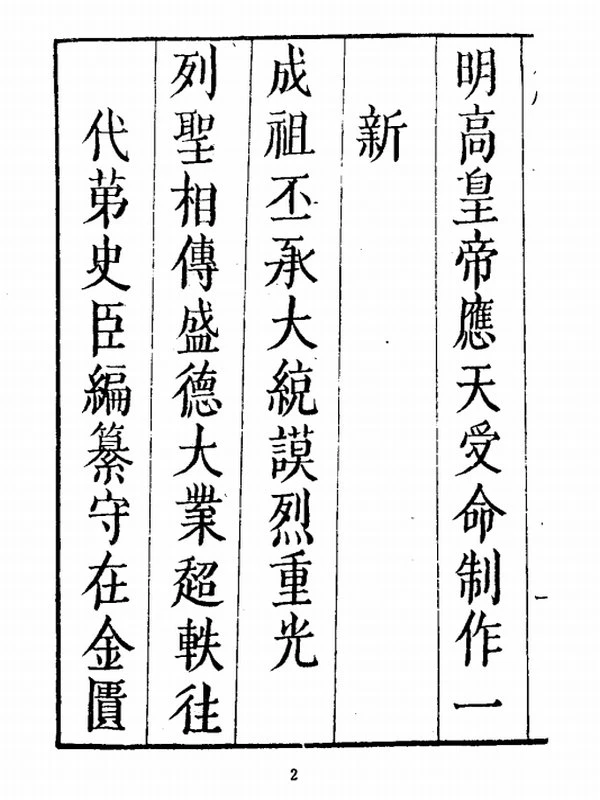 明高皇帝應天受命制作一
新
成祖丕承大統謨烈重光
列聖相傳盛德大業超軼往
代第史臣編纂守在金匱
2